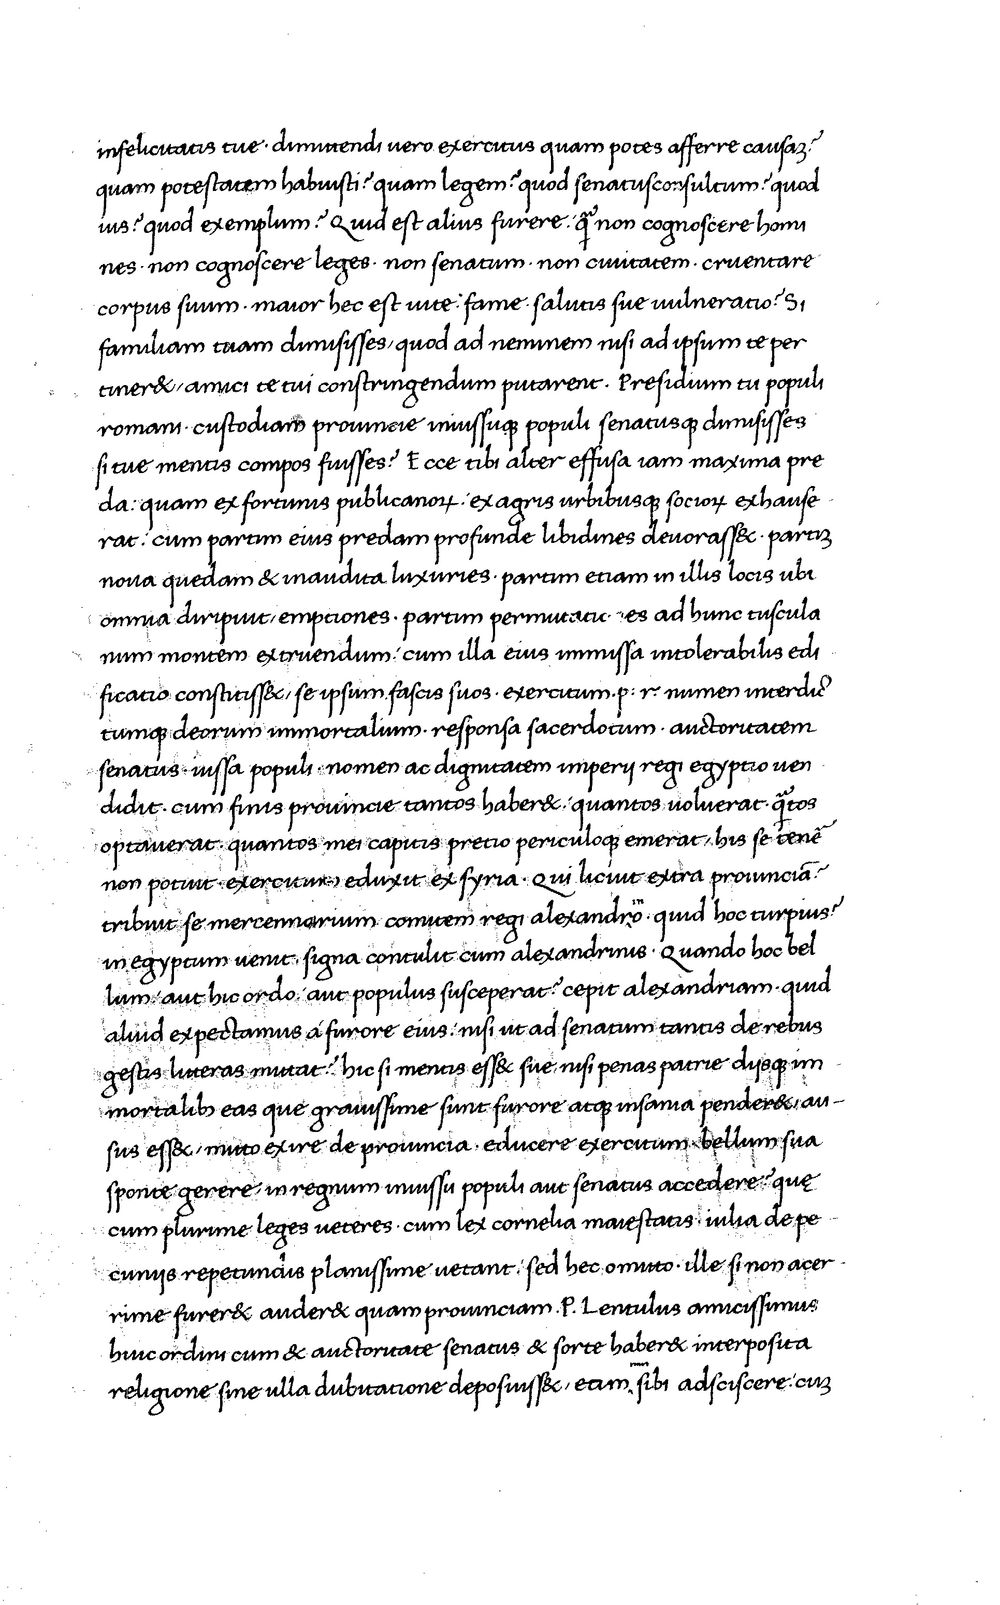 infelicitatis tue · dimittendi uero exercitus quam potes afferre causaꝫ?
quam potestatem habuisti? quam legem? quod senatusconsultum? quod
ius? quod exemplum? Quid est alius furere: qᷓ non cognoscere homi
nes · non cognoscere leges · non senatum · non ciuitatem · cruentare
corpus suum · maior hec est uite: fame · salutis sue uulneratio? Si
familiam tuam dimisisses / quod ad neminem nisi ad ipsum te per
tiner& / amici te tui constringendum putarent. Presidium tu populi
romani · custodiam prouincie iniussuqꝫ populi senatusqꝫ dimisisses
si tue mentis compos fuisses? Ecce tibi alter effusa iam maxima pre
da: quam ex fortunis publicanoꝝ: ex agris urbibusqꝫ socioꝝ exhause
rat: cum partim eius predam profunde libidines deuorass& · partiꝫ
noua quedam & inaudita luxuries · partim etiam in illis locis ubi
omnia diripuit / emptiones · partim permutatio es ad hunc tuscula
num montem extruendum: cum illa eius immissa intolerabilis edi
ficatio constitiss& / se ipsum fascis suos · exercitum · p: r: numen interdic̄
tumqꝫ deorum immortalium · responsa sacerdotum · auctoritatem
senatus · iussa populi · nomen ac dignitatem imperij regi egyptio uen
didit · cum finis prouincie tantos haber& : quantos uoluerat · qᷓtos
optauerat · quantos mei capitis pretio periculoqꝫ emerat / his se tenē
non potuit · exercitum eduxit ex syria · Qui licuit extra prouinciā?
tribuit se mercennarium comitem regi alexandro · quid hoc turpius?
in egyptum uenit · signa contulit cum alexandrinis · Quando hoc bel
lum / aut hic ordo / aut populus susceperat? cepit alexandriam · quid
aliud expectamus a furore eius: nisi ut ad senatum tantis de rebus
gestis litteras mittat? hic si mentis ess& sue / nisi penas patrie dijsqꝫ im
mortalibꝫ eas que grauissime sunt furore atqꝫ insania pender& / au-
sus ess& / mitto exire de prouincia · educere exercitum · bellum sua
sponte gerere / in regnum iniussu populi aut senatus accedere? quę
cum plurime leges ueteres · cum lex cornelia maiestatis: iulia de pe
cunijs repetundis planissime uetant: sed hec omitto · ille si non acer
rime furer& auder& quam prouinciam · P. Lentulus amicissimus
huic ordini cum & auctoritate senatus & sorte haber& interposita
religione sine ulla dubitatione deposuiss& / etim sibi adsciscere: cuꝫ